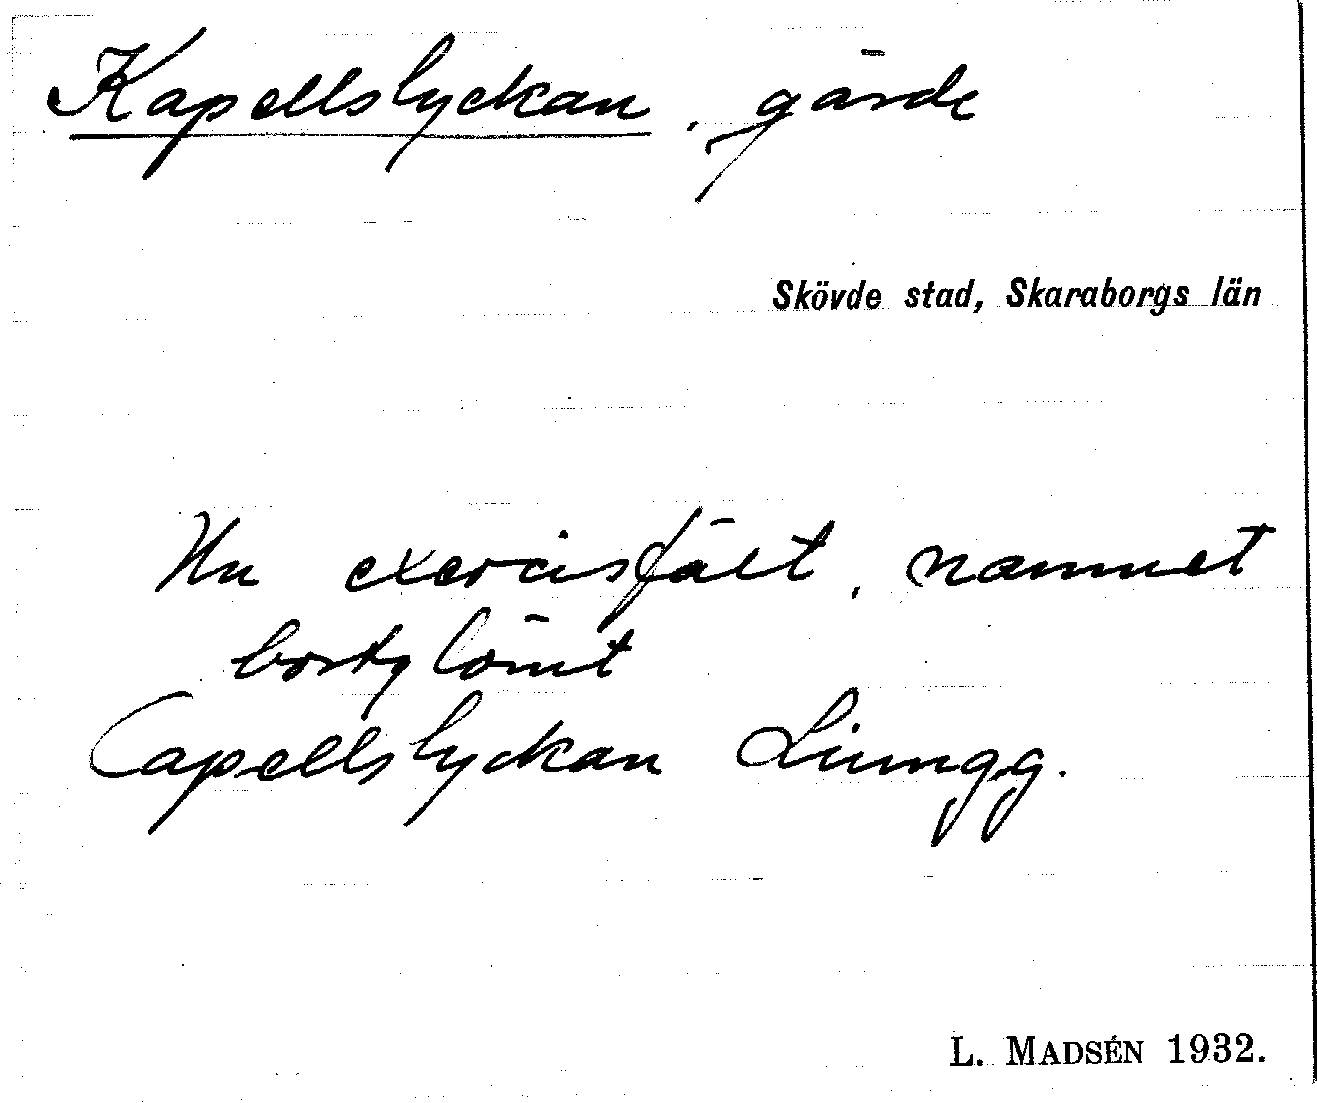 Kapellslyckan, gärde
Skövde stad, Skaraborgs län
Nu exercisfält, namnet
bortglömt
Capellslyckan Liungg.
L. MADSÉN 1932.